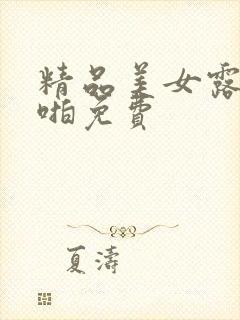 精品美女露
啪免费
夏涛